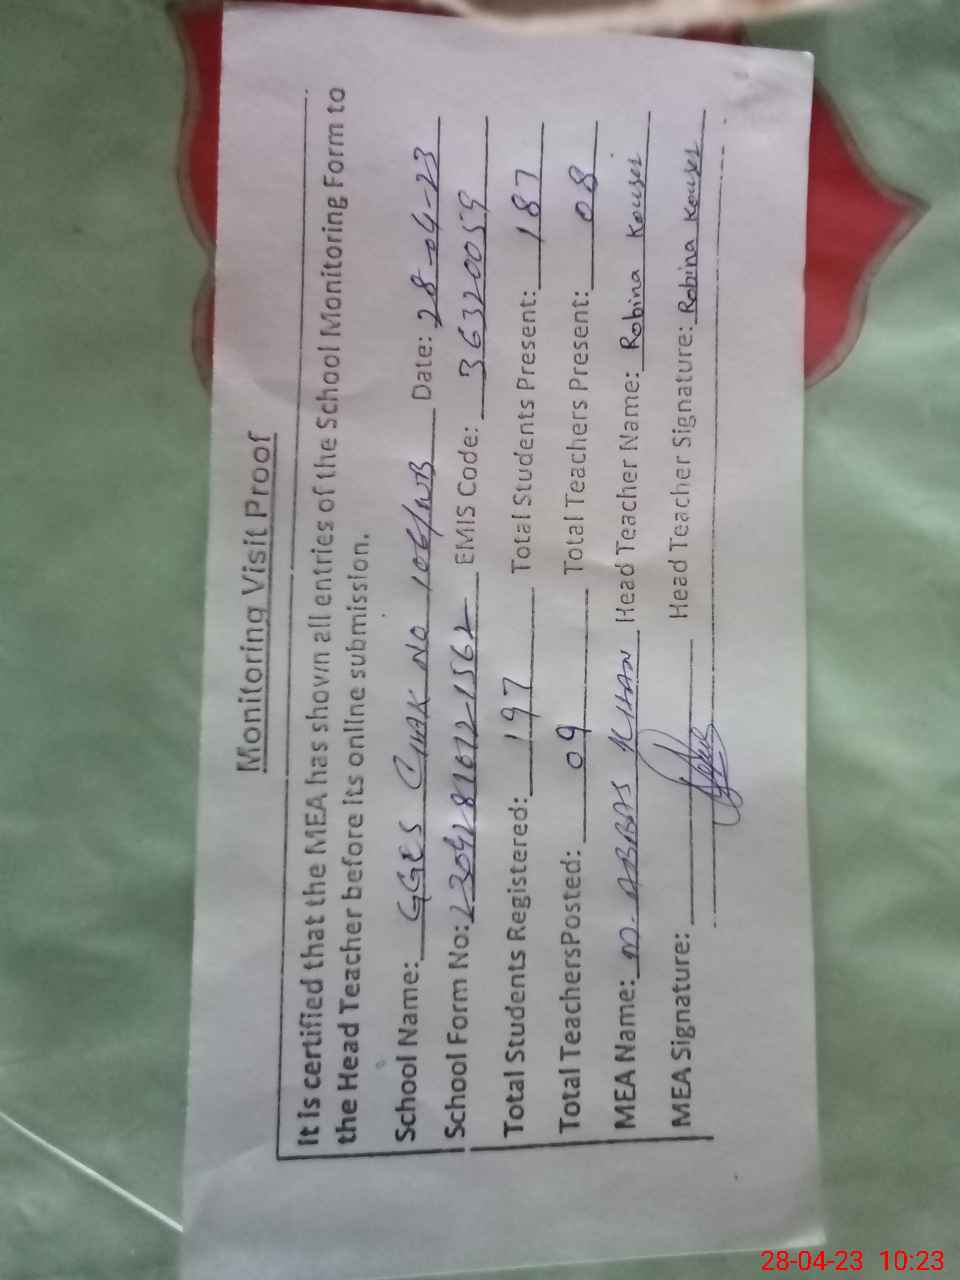 Monitoring Visit Proof
It is certified that the MEA has shown all entries of the School Monitoring Form to
the Head Teacher before its online submission.
School Name: GGES CHAK NO 106/WB Date: 28-04-23
School Form No: 230428101221562 EMIS Code: 36320059
Total Students Registered: 197 Total Students Present: 187
Total TeachersPosted: 09 Total Teachers Present: 08
MEA Name: M. ABBAS KHAN Head Teacher Name: Robina Kouser
MEA Signature: Head Teacher Signature: Robina Kouser
28-04-23 10:23